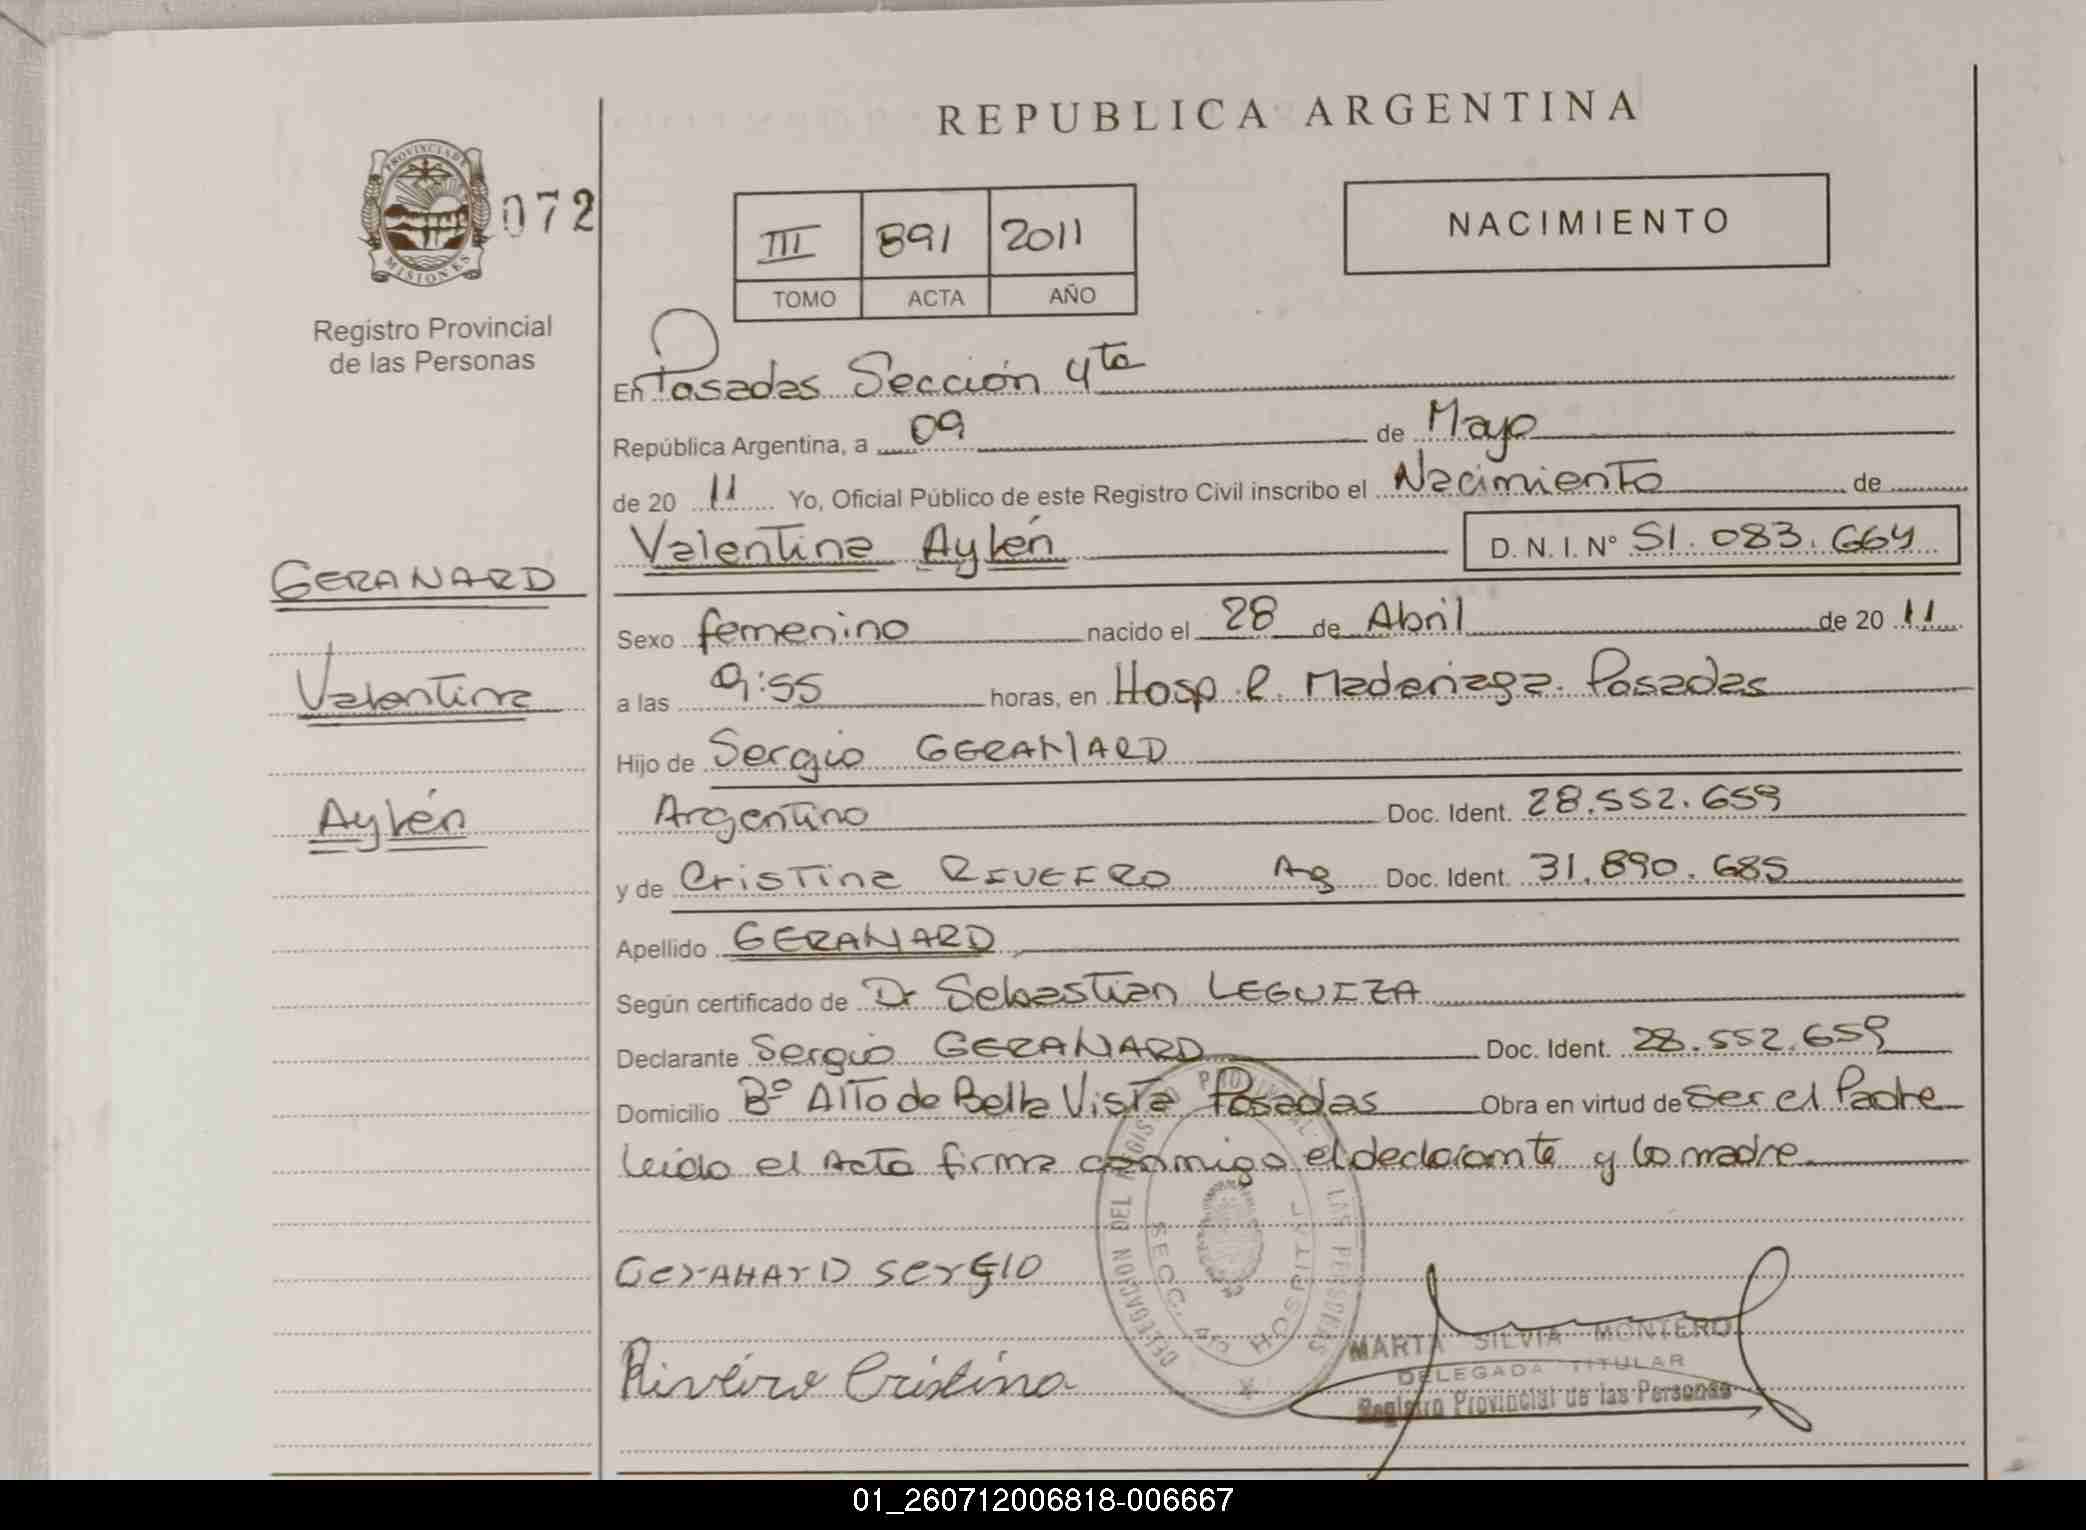 REPUBLICA ARGENTINA
PROVINCIA DE MISIONES
072
Registro Provincial
de las Personas
III 891 2011
TOMO ACTA AÑO
NACIMIENTO
En Posadas Sección 4ta
República Argentina, a 09 de Mayo
de 20 11 Yo, Oficial Público de este Registro Civil inscribo el Nacimiento de
Valentina Aylén D. N. I. Nº 51.083.664
GERANARD
Valentina
Aylén
Sexo femenino nacido el 28 de Abril de 20 11
a las 9:55 horas, en Hosp. R. Madariaga. Posadas
Hijo de Sergio GERANARD
Argentino Doc. Ident. 28.552.659
y de Cristina RIVEIRO Ag Doc. Ident. 31.890.685
Apellido GERANARD
Según certificado de Dr Sebastian LEGUIZA
Declarante Sergio GERANARD Doc. Ident. 28.552.659
Domicilio Bº Alto de Bella Vista Posadas Obra en virtud de ser el Padre
leido el Acta firma conmigo el declarante y la madre
DELEGACION DEL REGISTRO PROVINCIAL DE LAS PERSONAS
SECC. 4ª HOSPITAL
GerAnArD sergio
Riveiro Cristina
MARTA SILVIA MONTERO
DELEGADA TITULAR
Registro Provincial de las Personas
01_260712006818-006667